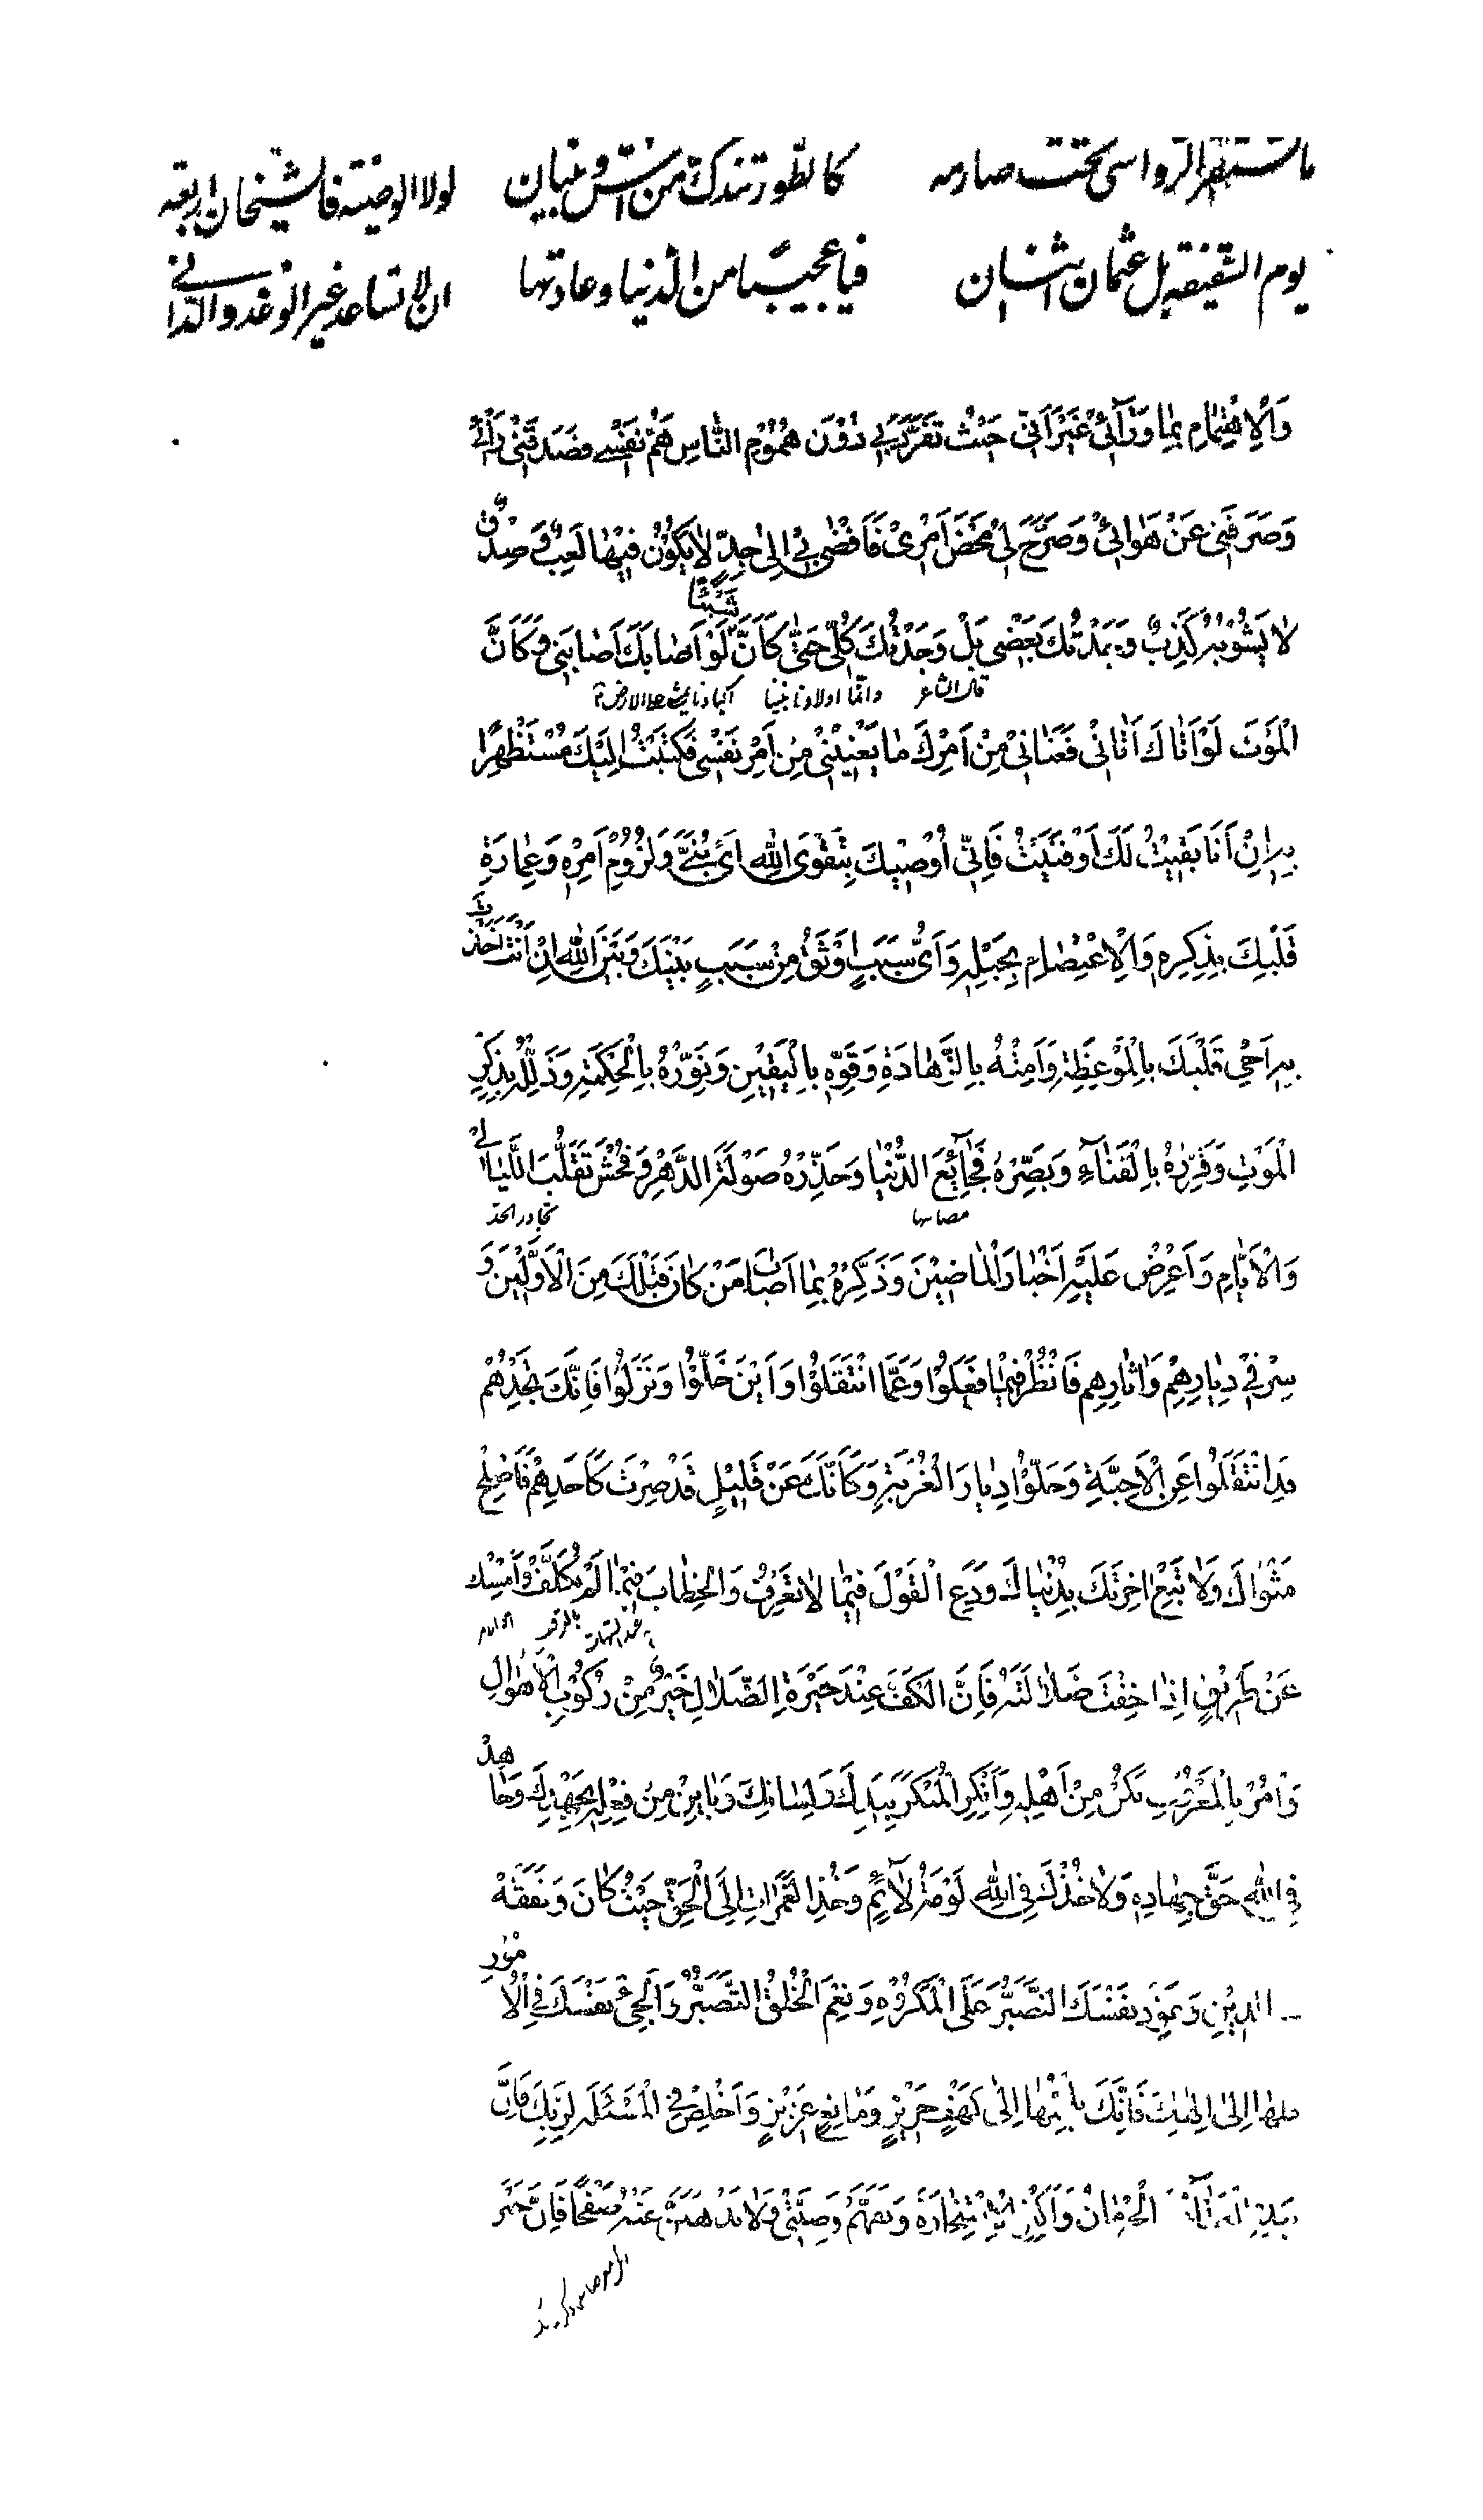 ما تستقر الرواسي تحت صارمه كالطود تندك من اس وبنيان لولا الوصية فالشيخان اربعة
يوم السقيفة بل عثمان اثنان فيا عجيبا من الدنيا وعادتها ان لا تساعد غير الوغد والداني
وَالْاِهْتِمٰامِ بِمٰا وَرٰآئىْ غَيْرَ اَنّى حَيْثُ تَفَرَّدَ بى دُوْنَ هُمُوْمِ النّٰاسِ هَمُّ نَفْسى فَصَدَقَنى رَأْىْ
وَصَرَفَنى عَنْ هَوٰائىْ وَصَرَّحَ لىْ مَحْضُ اَمْرىْ فَاَفْضٰى بىْ اِلىٰ جِدٍّ لاٰ يَكُوْنُ فيْهٰا لَعِبٌ وَ صِدْقٍ
لاٰ يَشُوْبُهُ كَذِبٌ وَجَدْتُكَ بَعْضى بَلْ وَجَدْتُكَ كُلّى حَتّٰى كَاَنَّ شَيْئًا لَوْ اَصٰابَكَ اَصٰابَنى وَ كَاَنَّ
قال الشاعر وانما اولادنا بيننا اكبادنا يمشى على الارض
الْمَوْتَ لَوْ اَتٰاكَ اَتٰانىْ فَعَنٰانىْ مِنْ اَمْرِكَ مٰا يَعْنِيْنىْ مِنْ اَمْرِ نَفْسى فَكَتَبْتُ اِلَيْكَ مُسْتَظْهِرًا
بِهِ اِنْ اَنَا بَقِيْتُ لَكَ اَوْ فَنَيْتُ فَاِنّى اُوْصيْكَ بِتَقْوَى اللّٰهِ اَىْ بُنَىَّ وَ لُزُوْمِ اَمْرِهِ وَ عِمٰارَةِ
قَلْبِكَ بِذِكْرِهِ وَالْاِعْتِصٰامِ بِحَبْلِهِ وَ اَىُّ سَبَبٍ اَوْثَقُ مِنْ سَبَبٍ بَيْنَكَ وَ بَيْنَ اللّٰهِ اِنْ اَنْتَ اَخَذْتَ
بِهِ اَحْىِ قَلْبَكَ بِالْمَوْعِظَةِ وَ اَمِتْهُ بِالزَّهٰادَةِ وَ قَوِّهِ بِالْيَقيْنِ وَ نَوِّرْهُ بِالْحِكْمَةِ وَ ذَلِّلْهُ بِذِكْرِ
الْمَوْتِ وَ قَرِّرْهُ بِالْفَنٰآءِ وَ بَصِّرْهُ فَجٰآئِعَ الدُّنْيٰا وَ حَذِّرْهُ صَوْلَةَ الدَّهْرِ وَ فُحْشَ تَقَلُّبِ اللَّيٰالىْ
مصائبها تجاوز الحد
وَ الْاَيّٰامِ وَ اَعْرِضْ عَلَيْهِ اَخْبٰارَ الْمٰاضيْنَ وَ ذَكِّرْهُ بِمٰا اَصٰابَ مَنْ كٰانَ قَبْلَكَ مِنَ الْاَوَّليْنَ وَ
سِرْ فىْ دِيٰارِهِمْ وَ اٰثٰارِهِم فَانْظُرْ فيْمٰا فَعَلُوْا وَ عَمَّا انْتَقَلُوْا وَ اَيْنَ حَلُّوْا وَ نَزَلُوْا فَاِنَّكَ تَجِدُهُمْ
قَدِ انْتَقَلُوا عَنِ الْاَحِبَّةِ وَ حَلُّوْا دِيٰارَ الْغُرْبَةِ وَ كَاَنَّكَ عَنْ قَليْلٍ قَدْ صِرْتَ كَاَحَدِهِمْ فَاَصْلِحْ
مَثْوٰاكَ وَ لاٰ تَبِعْ اٰخِرَتَكَ بِدُنْيٰاكَ وَ دَعِ الْقَوْلَ فيْمٰا لاٰ تَعْرِفُ وَ الْخِطٰابَ فيْمٰا لَمْ تُكَلَّفْ وَ اَمْسِكْ
عَنْ طَريْقٍ اِذٰا خِفْتَ ضَلاٰلَتَهُ فَاِنَّ الْكَفَّ عِنْدَ حَيْرَةِ الضَّلاٰلِ خَيْرٌ مِنْ رُكُوْبِ الْاَهْوٰالِ
وَ اْمُرْ بِالْمَعْرُوْفِ تَكُنْ مِنْ اَهْلِهِ وَ اَنْكِرِ الْمُنْكَرَ بِيَدِكَ وَ لِسٰانِكَ وَ بٰايِنْ مَنْ فَعَلَهُ بِجُهْدِكَ وَ جٰاهِدْ
فِى اللّٰهِ حَقَّ جِهٰادِهِ وَ لاٰ تَأْخُذْكَ فِى اللّٰهِ لَوْمَةُ لاٰئِمٍ وَ خُضِ الْغَمَرٰاتِ اِلَى الْحَقِّ حَيْثُ كٰانَ وَ تَفَقَّهْ
فِى الدّيْنِ وَ عَوِّدْ نَفْسَكَ التَّصَبُّرَ عَلَى الْمَكْرُوْهِ وَ نِعْمَ الْخُلُقُ التَّصَبُّرُ وَ اَلْجِئْ نَفْسَكَ فِى الْاُمُوْرِ
كُلِّهٰا اِلىٰ اِلٰهِكَ فَاِنَّكَ تُلْجِئُهٰا اِلىٰ كَهْفٍ حَريْزٍ وَ مٰانِعٍ عَزيْزٍ وَ اَخْلِصْ فِى الْمَسْئَلَةِ لِرَبِّكَ فَاِنَّ
بِيَدِهِ الْعَطٰآءَ وَ الْحِرْمٰانَ وَ اَكْثِرِ الْاِسْتِخٰارَةَ وَ تَفَهَّمْ وَصِيَّتىْ وَ لاٰ تَذْهَبَنَّ عَنْهُ صَفْحًا فَاِنَّ خَيْرَ